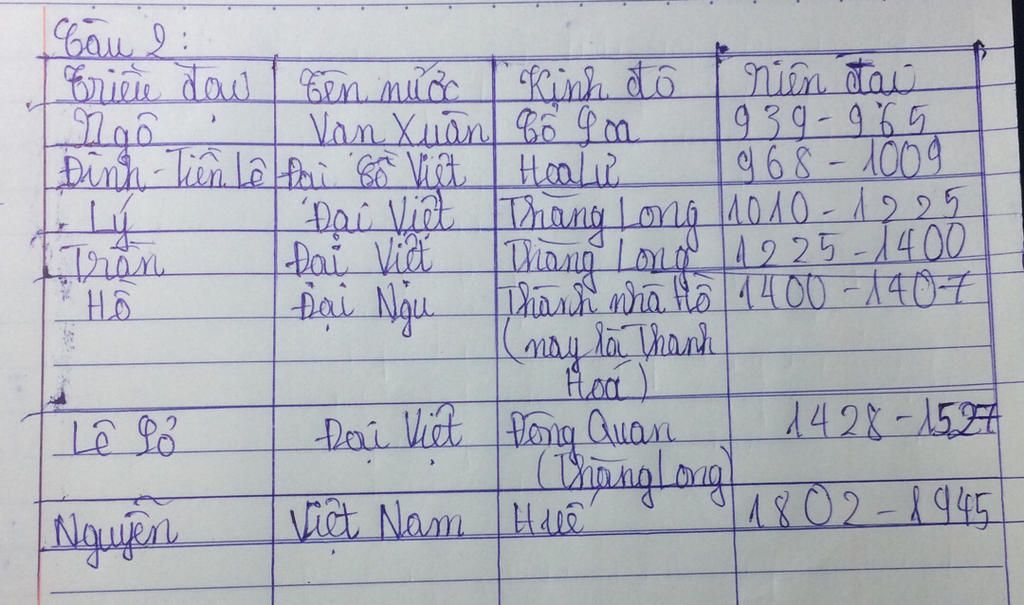 Câu 2:
Triều đại Tên nước Kinh đô Niên đại
Ngô Vạn Xuân Cổ Loa 939-965
Đinh-Tiền Lê Đại Cồ Việt Hoa Lư 968-1009
Lý Đại Việt Thăng Long 1010-1225
Trần Đại Việt Thăng Long 1225-1400
Hồ Đại Ngu Thành nhà Hồ 1400-1407
(nay là Thanh
Hoá)
Lê Sơ Đại Việt Đông Quan 1428-1527
(Thăng Long)
Nguyễn Việt Nam Huế 1802-1945